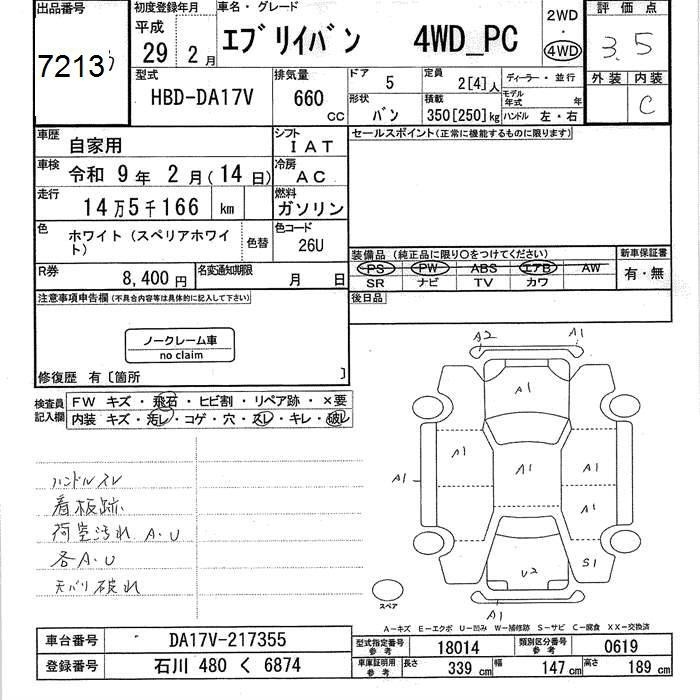 出品番号
7213
初度登録年月
平成
29 2月
車名・グレード
エブリイバン 4WD_PC
2WD
・
4WD
評価点
3.5
外装 内装
C
型式
HBD-DA17V
排気量
660 CC
ドア
5
定員
2[4]人
ディーラー・並行
モデル年式 年
形状
バン
積載
350[250]kg
ハンドル 左・右
車歴
自家用
シフト
IAT
セールスポイント(正常に機能するものに限ります)
車検
令和 9年 2月(14日)
冷房
AC
走行
14万5千166 km
燃料
ガソリン
色
ホワイト(スペリアホワイト)
色替
色コード
26U
装備品(純正品に限り○をつけてください)
PS PW ABS エアB AW
SR ナビ TV カワ
新車保証書
有・無
R券
8,400円
名変通知期限
月 日
後日品
注意事項申告欄(不具合内容等は具体的に記入して下さい)
ノークレーム車
no claim
修復歴 有〔箇所 〕
検査員記入欄
FW キズ・飛石・ヒビ割・リペア跡・×要
内装 キズ・汚レ・コゲ・穴・スレ・キレ・破レ
ハンドルスレ
看板跡
荷室汚れ A.U
各A.U
天バリ破れ
A2
A1
A1
A1
A1
A1
A1
A1
S1
U2
A1
スペア
A-キズ E-エクボ U-凹み W-補修跡 S-サビ C-腐食 XX-交換済
車台番号
DA17V-217355
登録番号
石川 480 く 6874
型式指定番号
参考
18014
類別区分番号
参考
0619
車庫証明用
参考
長さ
339 cm
幅
147 cm
高さ
189 cm